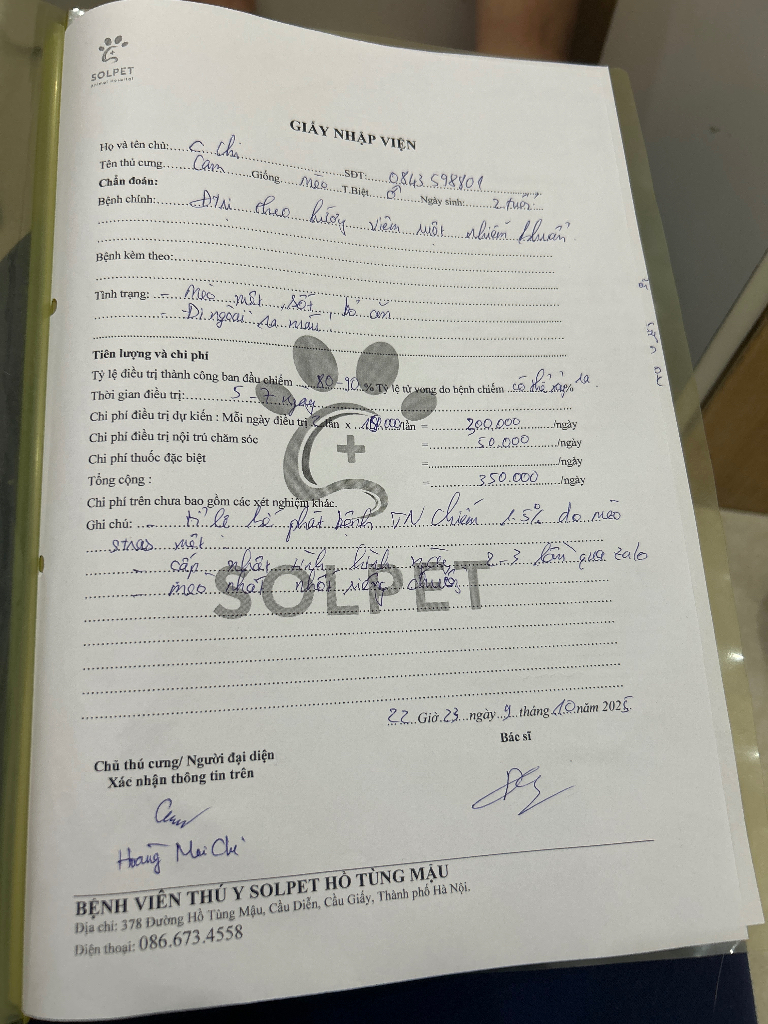 SOLPET
Animal Hospital
GIẤY NHẬP VIỆN
Họ và tên chủ: C. Chi
Tên thú cưng Cam Giống mèo SĐT: 0843598801
Chẩn đoán: T.Biệt ♂ Ngày sinh: 2 tuổi
Bệnh chính: Đtrị theo hướng viêm ruột nhiễm khuẩn
Bệnh kèm theo:
Tình trạng: - Mèo mệt, sốt, bỏ ăn
- Đi ngoài ra máu
Tiên lượng và chi phí
Tỷ lệ điều trị thành công ban đầu chiếm 80-90 % Tỷ lệ tử vong do bệnh chiếm có thể xảy % ra
Thời gian điều trị: 5-7 ngày
Chi phí điều trị dự kiến : Mỗi ngày điều trị lần x lần = 300.000 /ngày
Chi phí điều trị nội trú chăm sóc = 50.000 /ngày
Chi phí thuốc đặc biệt = /ngày
Tổng cộng : = 350.000 /ngày
Chi phí trên chưa bao gồm các xét nghiệm khác.
Ghi chú: - tỉ lệ kế phát bệnh TN chiếm 1-5% do mèo
stras mệt
- cập nhật tình hình 2-3 lần qua zalo
- mèo nhát nhốt riêng chuồng
SOLPET
22 Giờ 23 ngày 9 tháng 10 năm 2025
Chủ thú cưng/ Người đại diện
Xác nhận thông tin trên
Bác sĩ
Hoàng Mai Chi
BỆNH VIỆN THÚ Y SOLPET HỒ TÙNG MẬU
Địa chỉ: 378 Đường Hồ Tùng Mậu, Cầu Diễn, Cầu Giấy, Thành phố Hà Nội.
Điện thoại: 086.673.4558